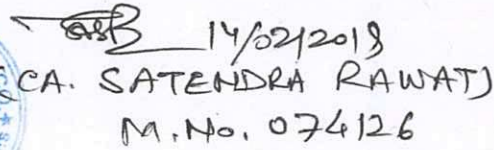 14/02/2019
CA. SATENDRA RAWAT)
M.No. 074126